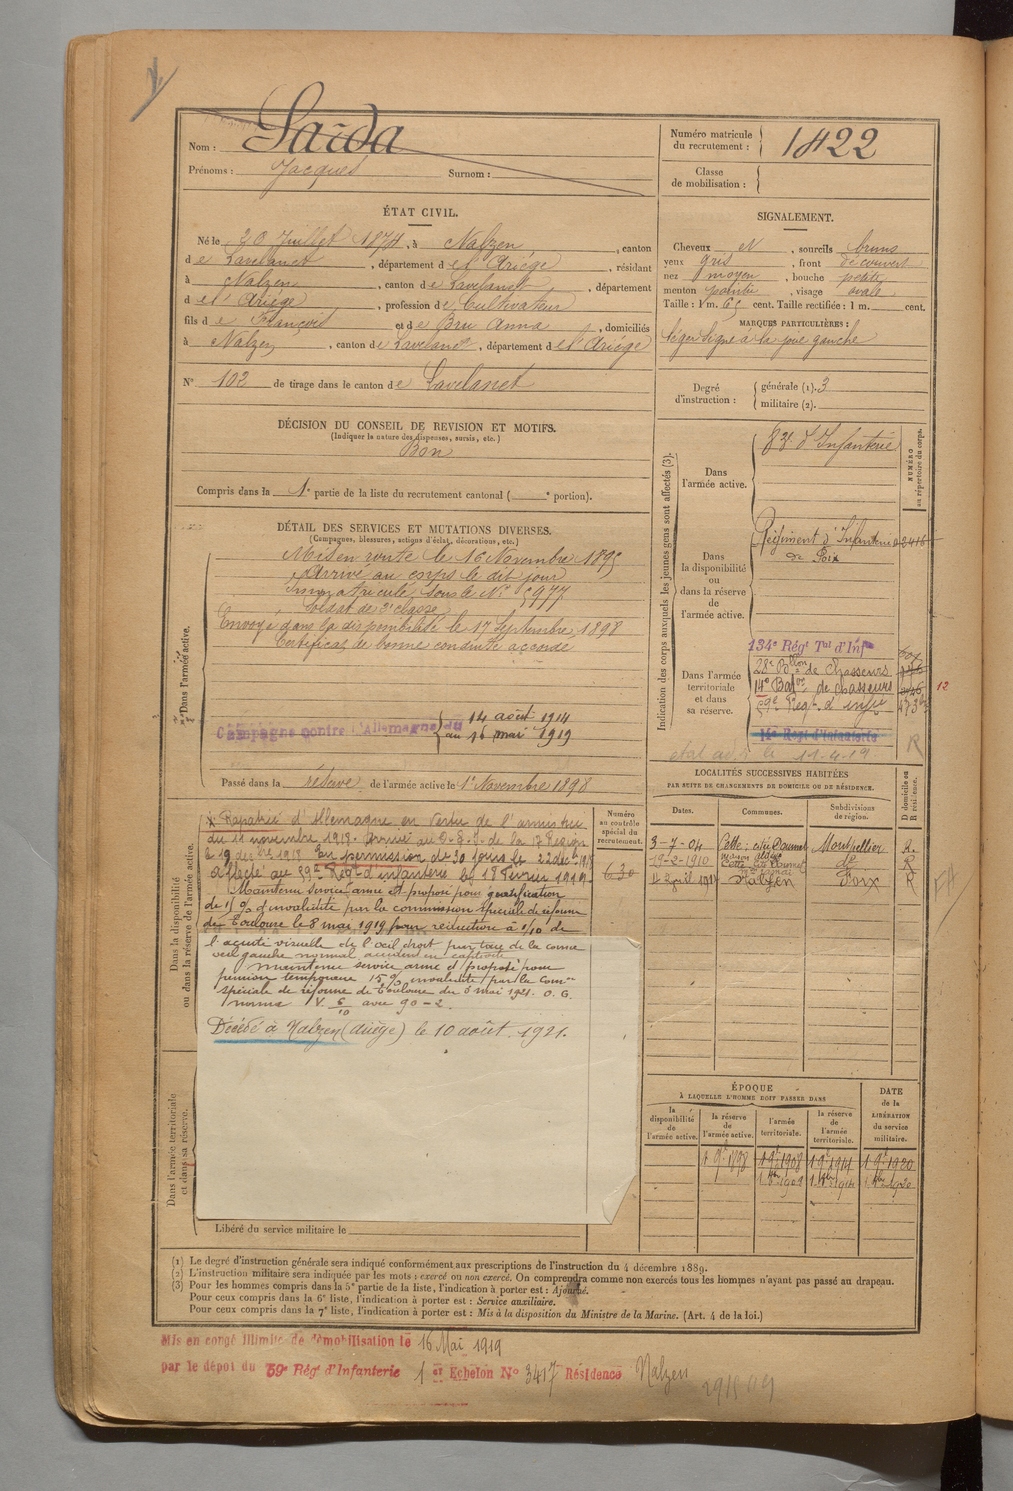 Nom : Sarda
Prénoms : Jacques Surnom :
Numéro matricule du recrutement : 1422
Classe de mobilisation :
ÉTAT CIVIL.
Né le 20 Juillet 1874, à Nalzen, canton
de Lavelanet, département de l'Ariège, résidant
à Nalzen, canton de Lavelanet, département
de l'Ariège, profession de Cultivateur
fils de François et de Bru Anna, domiciliés
à Nalzen, canton de Lavelanet, département de l'Ariège
N° 102 de tirage dans le canton de Lavelanet
SIGNALEMENT.
Cheveux N, sourcils bruns
yeux gris, front découvert
nez moyen, bouche petite
menton pointu, visage ovale
Taille : 1 m. 65 cent. Taille rectifiée : 1 m. cent.
MARQUES PARTICULIÈRES :
léger signe à la joue gauche
Degré d'instruction : générale (1). 3
militaire (2).
DÉCISION DU CONSEIL DE REVISION ET MOTIFS.
(Indiquer la nature des dispenses, sursis, etc.)
Bon
Compris dans la 1e partie de la liste du recrutement cantonal ( e portion).
DÉTAIL DES SERVICES ET MUTATIONS DIVERSES.
(Campagnes, blessures, actions d'éclat, décorations, etc.)
Dans l'armée active.
Mis en route le 16 Novembre 1895
Arrivé au corps le dit jour
Immatriculé sous le N° 5977
Soldat de 2e classe
Envoyé dans la disponibilité le 17 Septembre 1898
Certificat de bonne conduite accordé
Campagne contre l'Allemagne du 14 août 1914
au 16 mai 1919
Passé dans la réserve de l'armée active le 1er Novembre 1898
Indication des corps auxquels les jeunes gens sont affectés (3).
NUMÉRO au répertoire du corps.
Dans l'armée active.
83e d'Infanterie
Dans la disponibilité ou dans la réserve de l'armée active.
Régiment d'Infanterie 02416
de Foix
Dans l'armée territoriale et dans sa réserve.
134e Régt Tal d'Inf
28e Bllon de Chasseurs
14e Baton de chasseurs
59e Regt d'infie
14e Régt d'Infanterie
12
R
le 11-4-19
Dans la disponibilité ou dans la réserve de l'armée active.
Numéro au contrôle spécial du recrutement.
630
Rapatrié d'Allemagne en vertu de l'armistice
du 11 novembre 1918. Arrivé au D.G.I. de la 17 Région
le 19 décbre 1918 En permission de 30 jours le 22 déc 1918
affecté au 59e Regt d'infanterie le 18 Février 1919
Maintenu service armé et proposé pour gratification
de % d'invalidité par la commission spéciale de réforme
de Toulouse le 8 mai 1919 pour réduction à 1/10 de
l'acuité visuelle de l'œil droit par taie de la cornée
œil gauche normal
maintenu service armé et proposé pour
pension temporaire 15 % invalidité par la Comon
spéciale de réforme de Toulouse du 3 mai 1921. O. G.
V. 6/10 avec 90 - 2.
Décédé à Nalzen (Ariège) le 10 août 1921.
LOCALITÉS SUCCESSIVES HABITÉES
PAR SUITE DE CHANGEMENTS DE DOMICILE OU DE RÉSIDENCE.
Dates. Communes. Subdivisions de région. D domicile ou R résidence.
3-7-04 Cette : cité Doumet Montpellier R.
19-2-1910 Cette do R
Nalzen Foix R
ÉPOQUE
À LAQUELLE L'HOMME DOIT PASSER DANS
la disponibilité de l'armée active.
la réserve de l'armée active.
l'armée territoriale.
la réserve de l'armée territoriale.
DATE de la LIBÉRATION du service militaire.
1 9e 1898 1 9e 1908 1 9e 1914 1 9e 1920
Dans l'armée territoriale et dans sa réserve.
Libéré du service militaire le
(1) Le degré d'instruction générale sera indiqué conformément aux prescriptions de l'instruction du 4 décembre 1889.
(2) L'instruction militaire sera indiquée par les mots : exercé ou non exercé. On comprendra comme non exercés tous les hommes n'ayant pas passé au drapeau.
(3) Pour les hommes compris dans la 5e partie de la liste, l'indication à porter est : Ajourné.
Pour ceux compris dans la 6e liste, l'indication à porter est : Service auxiliaire.
Pour ceux compris dans la 7e liste, l'indication à porter est : Mis à la disposition du Ministre de la Marine. (Art. 4 de la loi.)
Mis en congé illimité de démobilisation le 16 Mai 1919
par le dépôt du 59e Régt d'Infanterie 1 er Echelon N° 3417 Résidence Nalzen